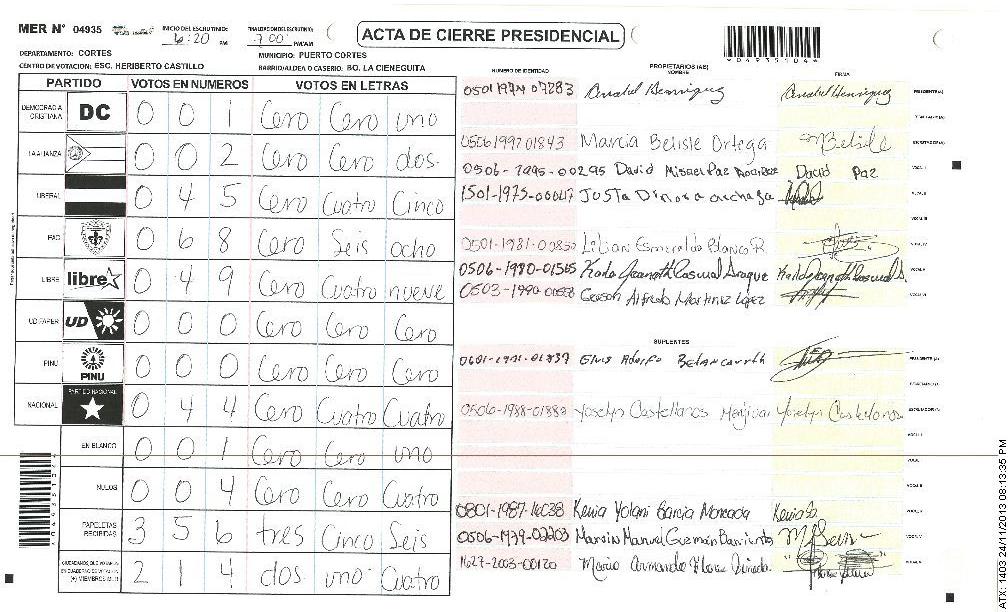 MER N° 04935 INICIO DEL ESCRUTINIO: 6:20 PM FINALIZACION DEL ESCRUTINIO: 7:00 PM/AM
ACTA DE CIERRE PRESIDENCIAL
DEPARTAMENTO: CORTES MUNICIPIO: PUERTO CORTES
CENTRO DE VOTACION: ESC. HERIBERTO CASTILLO BARRIO/ALDEA O CASERIO: BO. LA CIENEGUITA
PARTIDO VOTOS EN NUMEROS VOTOS EN LETRAS
DEMOCRACIA CRISTIANA DC 0 0 1 Cero Cero uno
LA ALIANZA 0 0 2 Cero Cero dos
LIBERAL 0 4 5 Cero Cuatro Cinco
PAC 0 6 8 Cero Seis ocho
LIBRE libre 0 4 9 Cero Cuatro nueve
UD FAPER UD 0 0 0 Cero Cero Cero
PINU PINU 0 0 0 Cero Cero Cero
NACIONAL PARTIDO NACIONAL 0 4 4 Cero Cuatro Cuatro
EN BLANCO 0 0 1 Cero Cero uno
NULOS 0 0 4 Cero Cero Cuatro
PAPELETAS RECIBIDAS 3 5 6 tres Cinco Seis
CIUDADANOS QUE VOTARON EN CUADERNO DE VOTACION (+) MIEMBROS MER 2 1 4 dos uno Cuatro
*04935104*
PROPIETARIOS (AS)
NUMERO DE IDENTIDAD NOMBRE FIRMA
0501 1974 07283 Anabel Henriquez Anabel Henriquez PRESIDENTE (A)
SECRETARIO (A)
0506 1992 01843 Marcia Belisle Ortega MBelisle ESCRUTADOR (A)
0506-1995-00295 David Misael Paz David Paz VOCAL I
1501-1975-00017 Justa Dinora VOCAL II
VOCAL III
Lilian Esmeralda Blanco R VOCAL IV
0506-1980-01565 Karla Jeaneth Pascual VOCAL V
Gerson Alfredo Martinez Lopez VOCAL VI
SUPLENTES
Elvis Adolfo Betancourth PRESIDENTE (A)
SECRETARIO (A)
0506-1988-01883 Yoselyn Castellanos Yoselyn Castellanos ESCRUTADOR (A)
VOCAL I
VOCAL II
VOCAL III
0801-1987-16038 Kenia Yolani Garcia Moncada Kenia G. VOCAL IV
0506-1979-02203 Marvin Manuel Guzmán Barrientos VOCAL V
1627-2003-00120 Mario Armando VOCAL VI
ATX: 1403 24/11/2013 08:13:35 PM